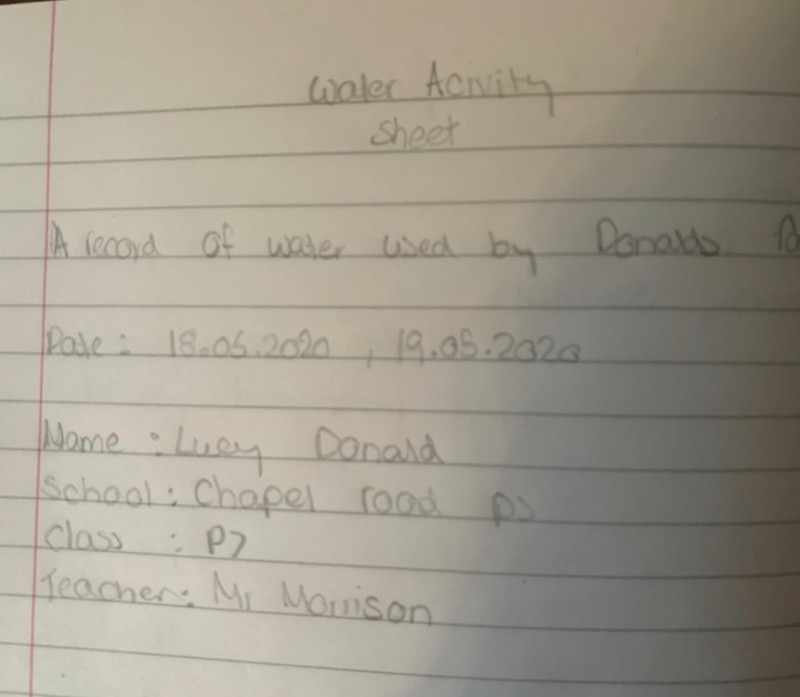 Water Acivity
Sheet
A record of water used by Donalds
Date : 18.05.2020 , 19.05.2020
Name : Lucy Donald
School : Chapel road ps
Class : P7
Teacher : Mr Morrison